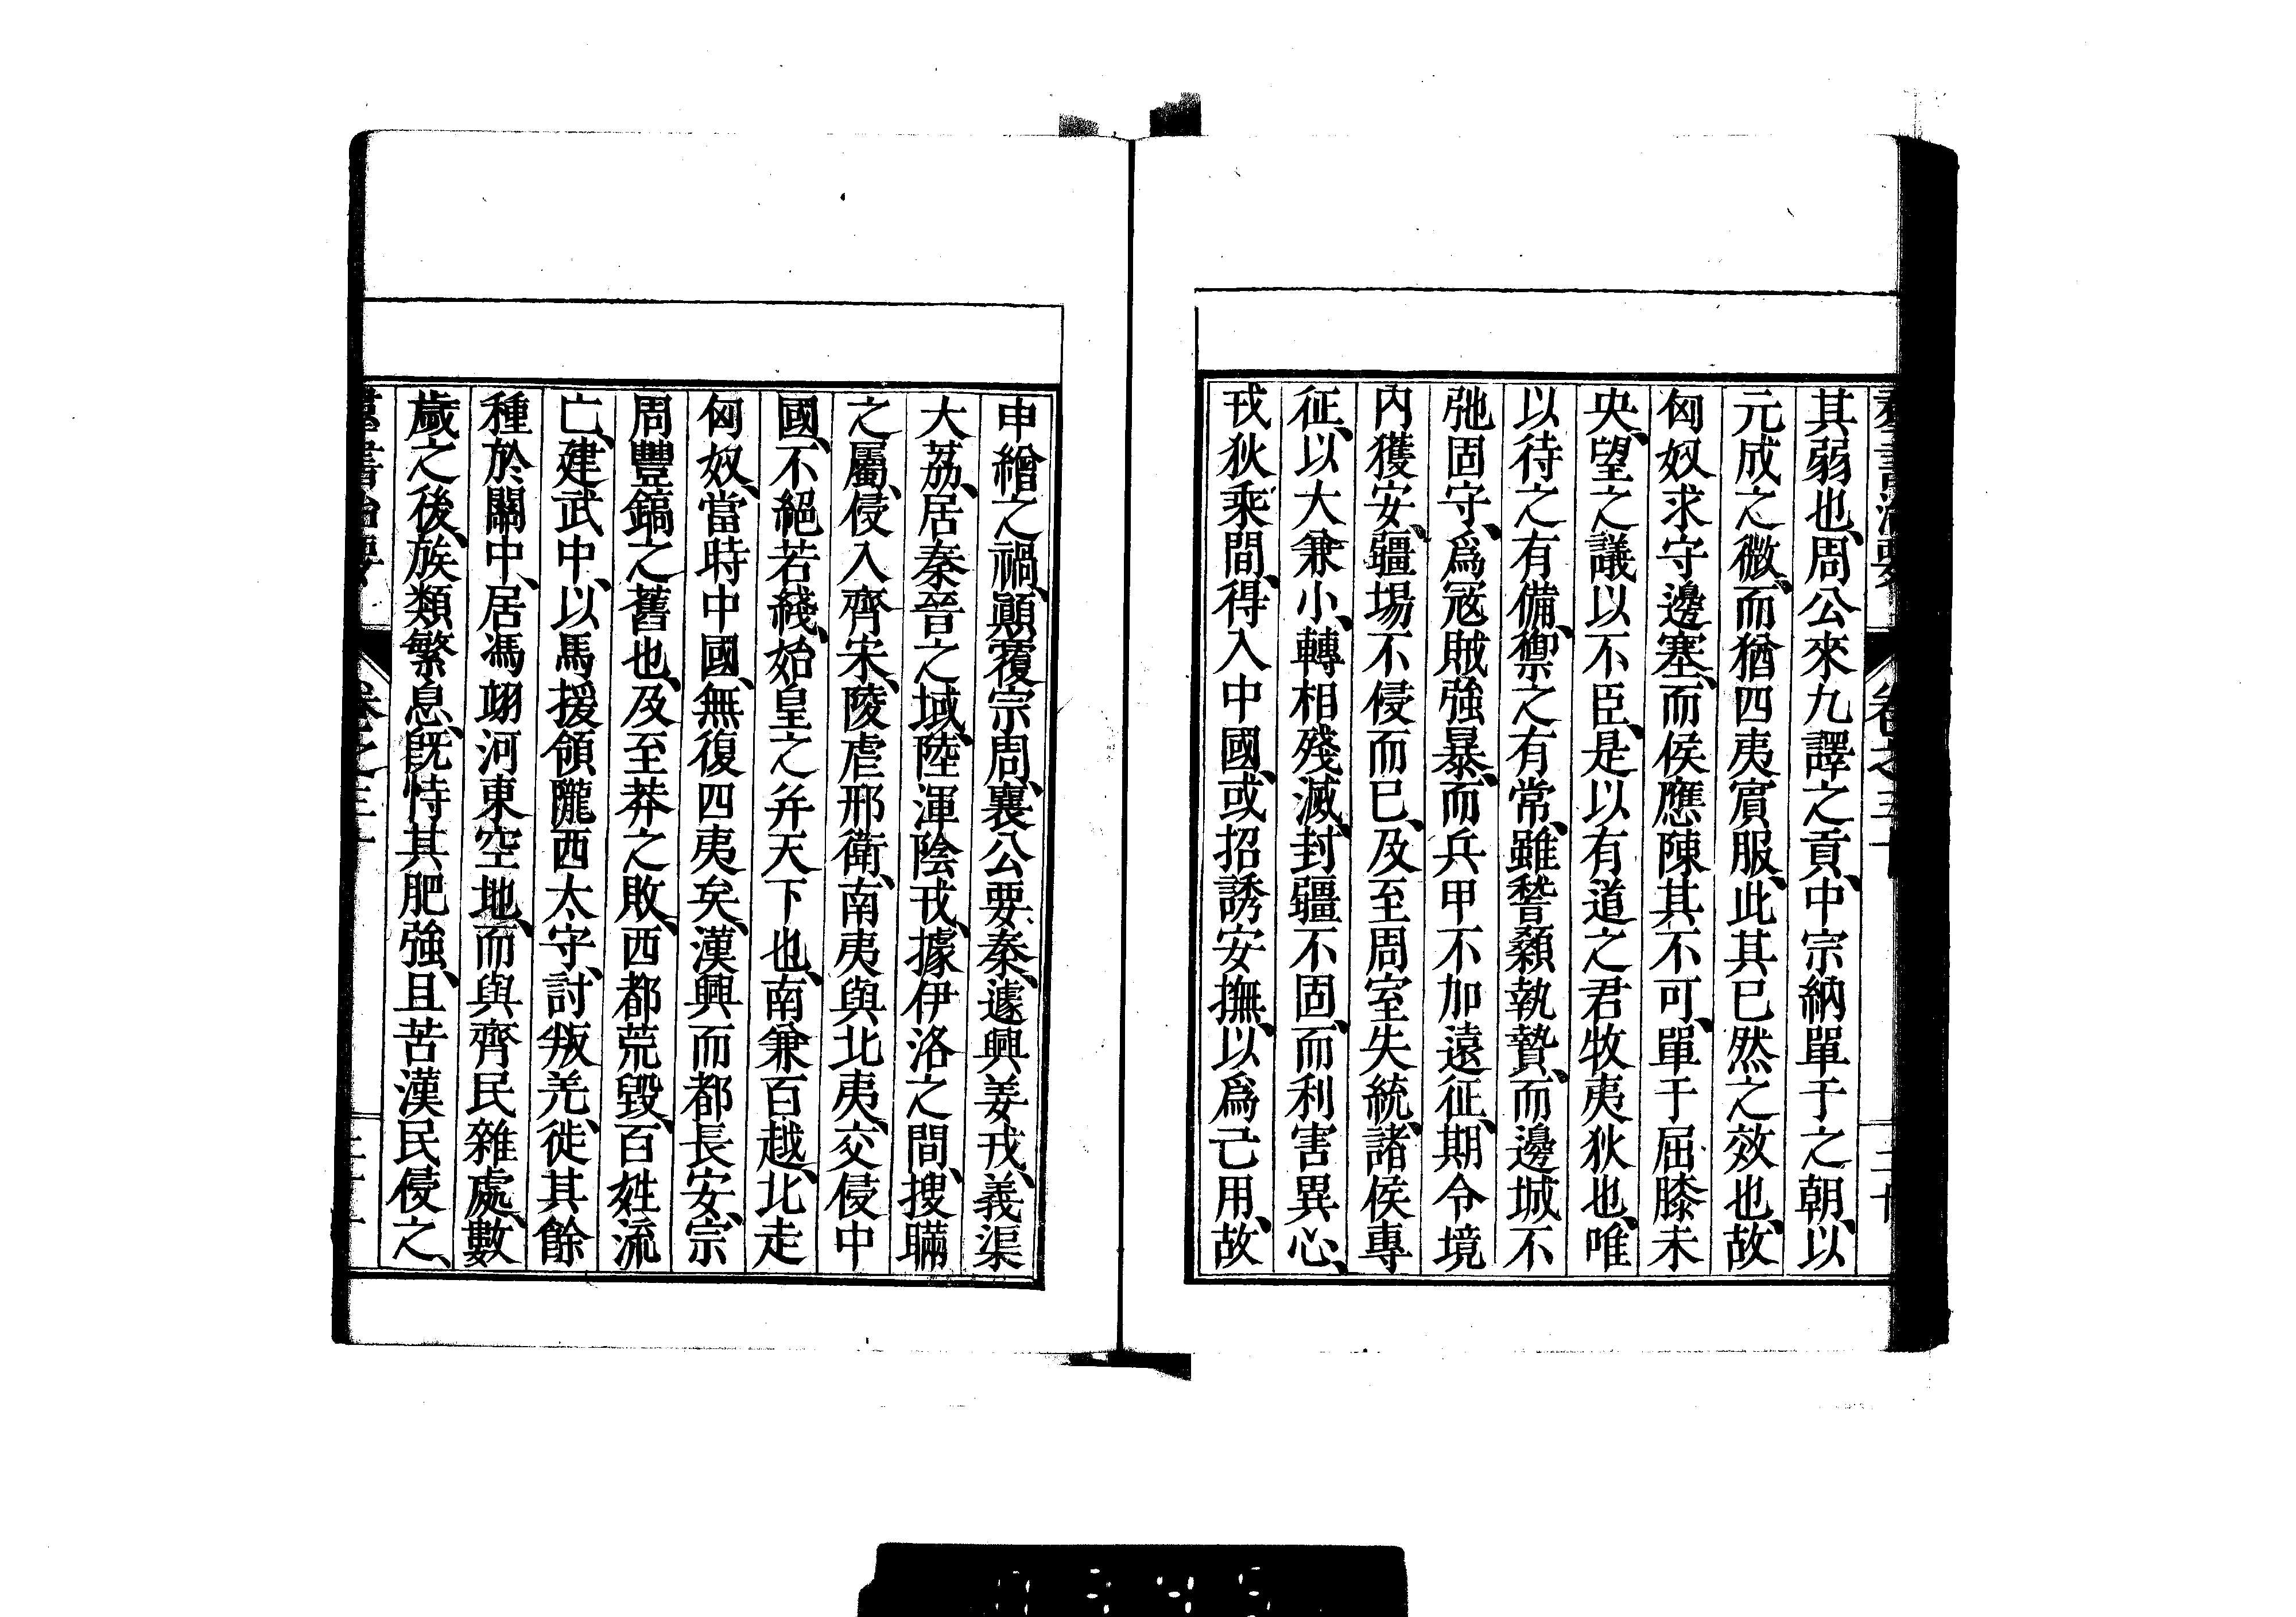 羣書治要 卷之三十 二十
其弱也、周公來九譯之貢、中宗納單于之朝、以
元成之微、而猶四夷賓服、此其已然之效也、故
匈奴求守邊塞、而侯應陳其不可、單于屈膝未
央、望之議以不臣、是以有道之君牧夷狄也、唯
以待之有備、禦之有常、雖稽顙執贄、而邊城不
弛固守、爲寇賊強暴、而兵甲不加遠征、期令境
內獲安、疆場不侵而已、及至周室失統、諸侯專
征、以大兼小、轉相殘滅、封疆不固、而利害異心、
戎狄乘間、得入中國、或招誘安撫、以爲己用、故
申繒之禍、顚覆宗周、襄公要秦、遽興姜戎、義渠
大荔、居秦晉之域、陸渾陰戎、據伊洛之間、搜瞞
之屬、侵入齊宋、陵虐邢衛、南夷與北夷、交侵中
國、不絕若綫、始皇之幷天下也、南兼百越、北走
匈奴、當時中國、無復四夷矣、漢興而都長安、宗
周豐鎬之舊也、及至莽之敗、西都荒毀、百姓流
亡、建武中、以馬援領隴西太守、討叛羌、徙其餘
種於關中、居馮翊河東空地、而與齊民雜處、數
歲之後、族類繁息、旣恃其肥強、且苦漢民侵之、
羣書治要 卷之三十